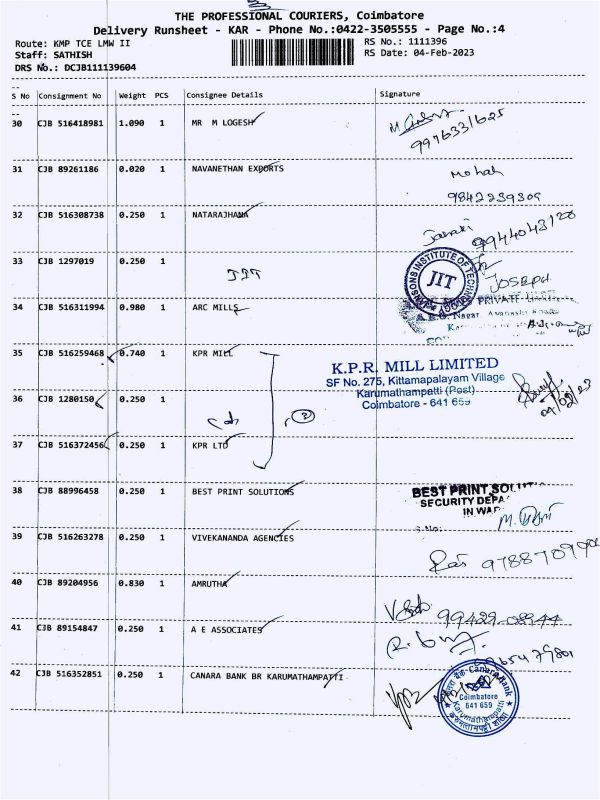 THE PROFESSIONAL COURIERS, Coimbatore
Delivery Runsheet - KAR - Phone No.:0422-3505555 - Page No.:4
Route: KMP TCE LMW II
RS No.: 1111396
Staff: SATHISH
RS Date: 04-Feb-2023
DRS No.: DCJB111139604
S No Consignment No Weight PCS Consignee Details Signature
30 CJB 516418981 1.090 1 MR M LOGESH
9976331625
31 CJB 89261186 0.020 1 NAVANETHAN EXPORTS
Mohan
9842239309
32 CJB 516308738 0.250 1 NATARAJHANA
9944043120
33 CJB 1297019 0.250 1
JIT
JIT
JOSEPH
34 CJB 516311994 0.980 1 ARC MILLS
PRIVATE
35 CJB 516259468 0.740 1 KPR MILL
K.P.R. MILL LIMITED
SF No. 275, Kittamapalayam Village
36 CJB 1280150 0.250 1
Karumathampatti (Post)
Coimbatore - 641 659
04/02/23
3
37 CJB 516372456 0.250 1 KPR LTD
38 CJB 88996458 0.250 1 BEST PRINT SOLUTIONS
BEST PRINT
SECURITY
IN
39 CJB 516263278 0.250 1 VIVEKANANDA AGENCIES
40 CJB 89204956 0.830 1 AMRUTHA
99429-08944
41 CJB 89154847 0.250 1 A E ASSOCIATES
42 CJB 516352851 0.250 1 CANARA BANK BR KARUMATHAMPATTI
Canara Bank
Coimbatore
641 659
Karumathampatti